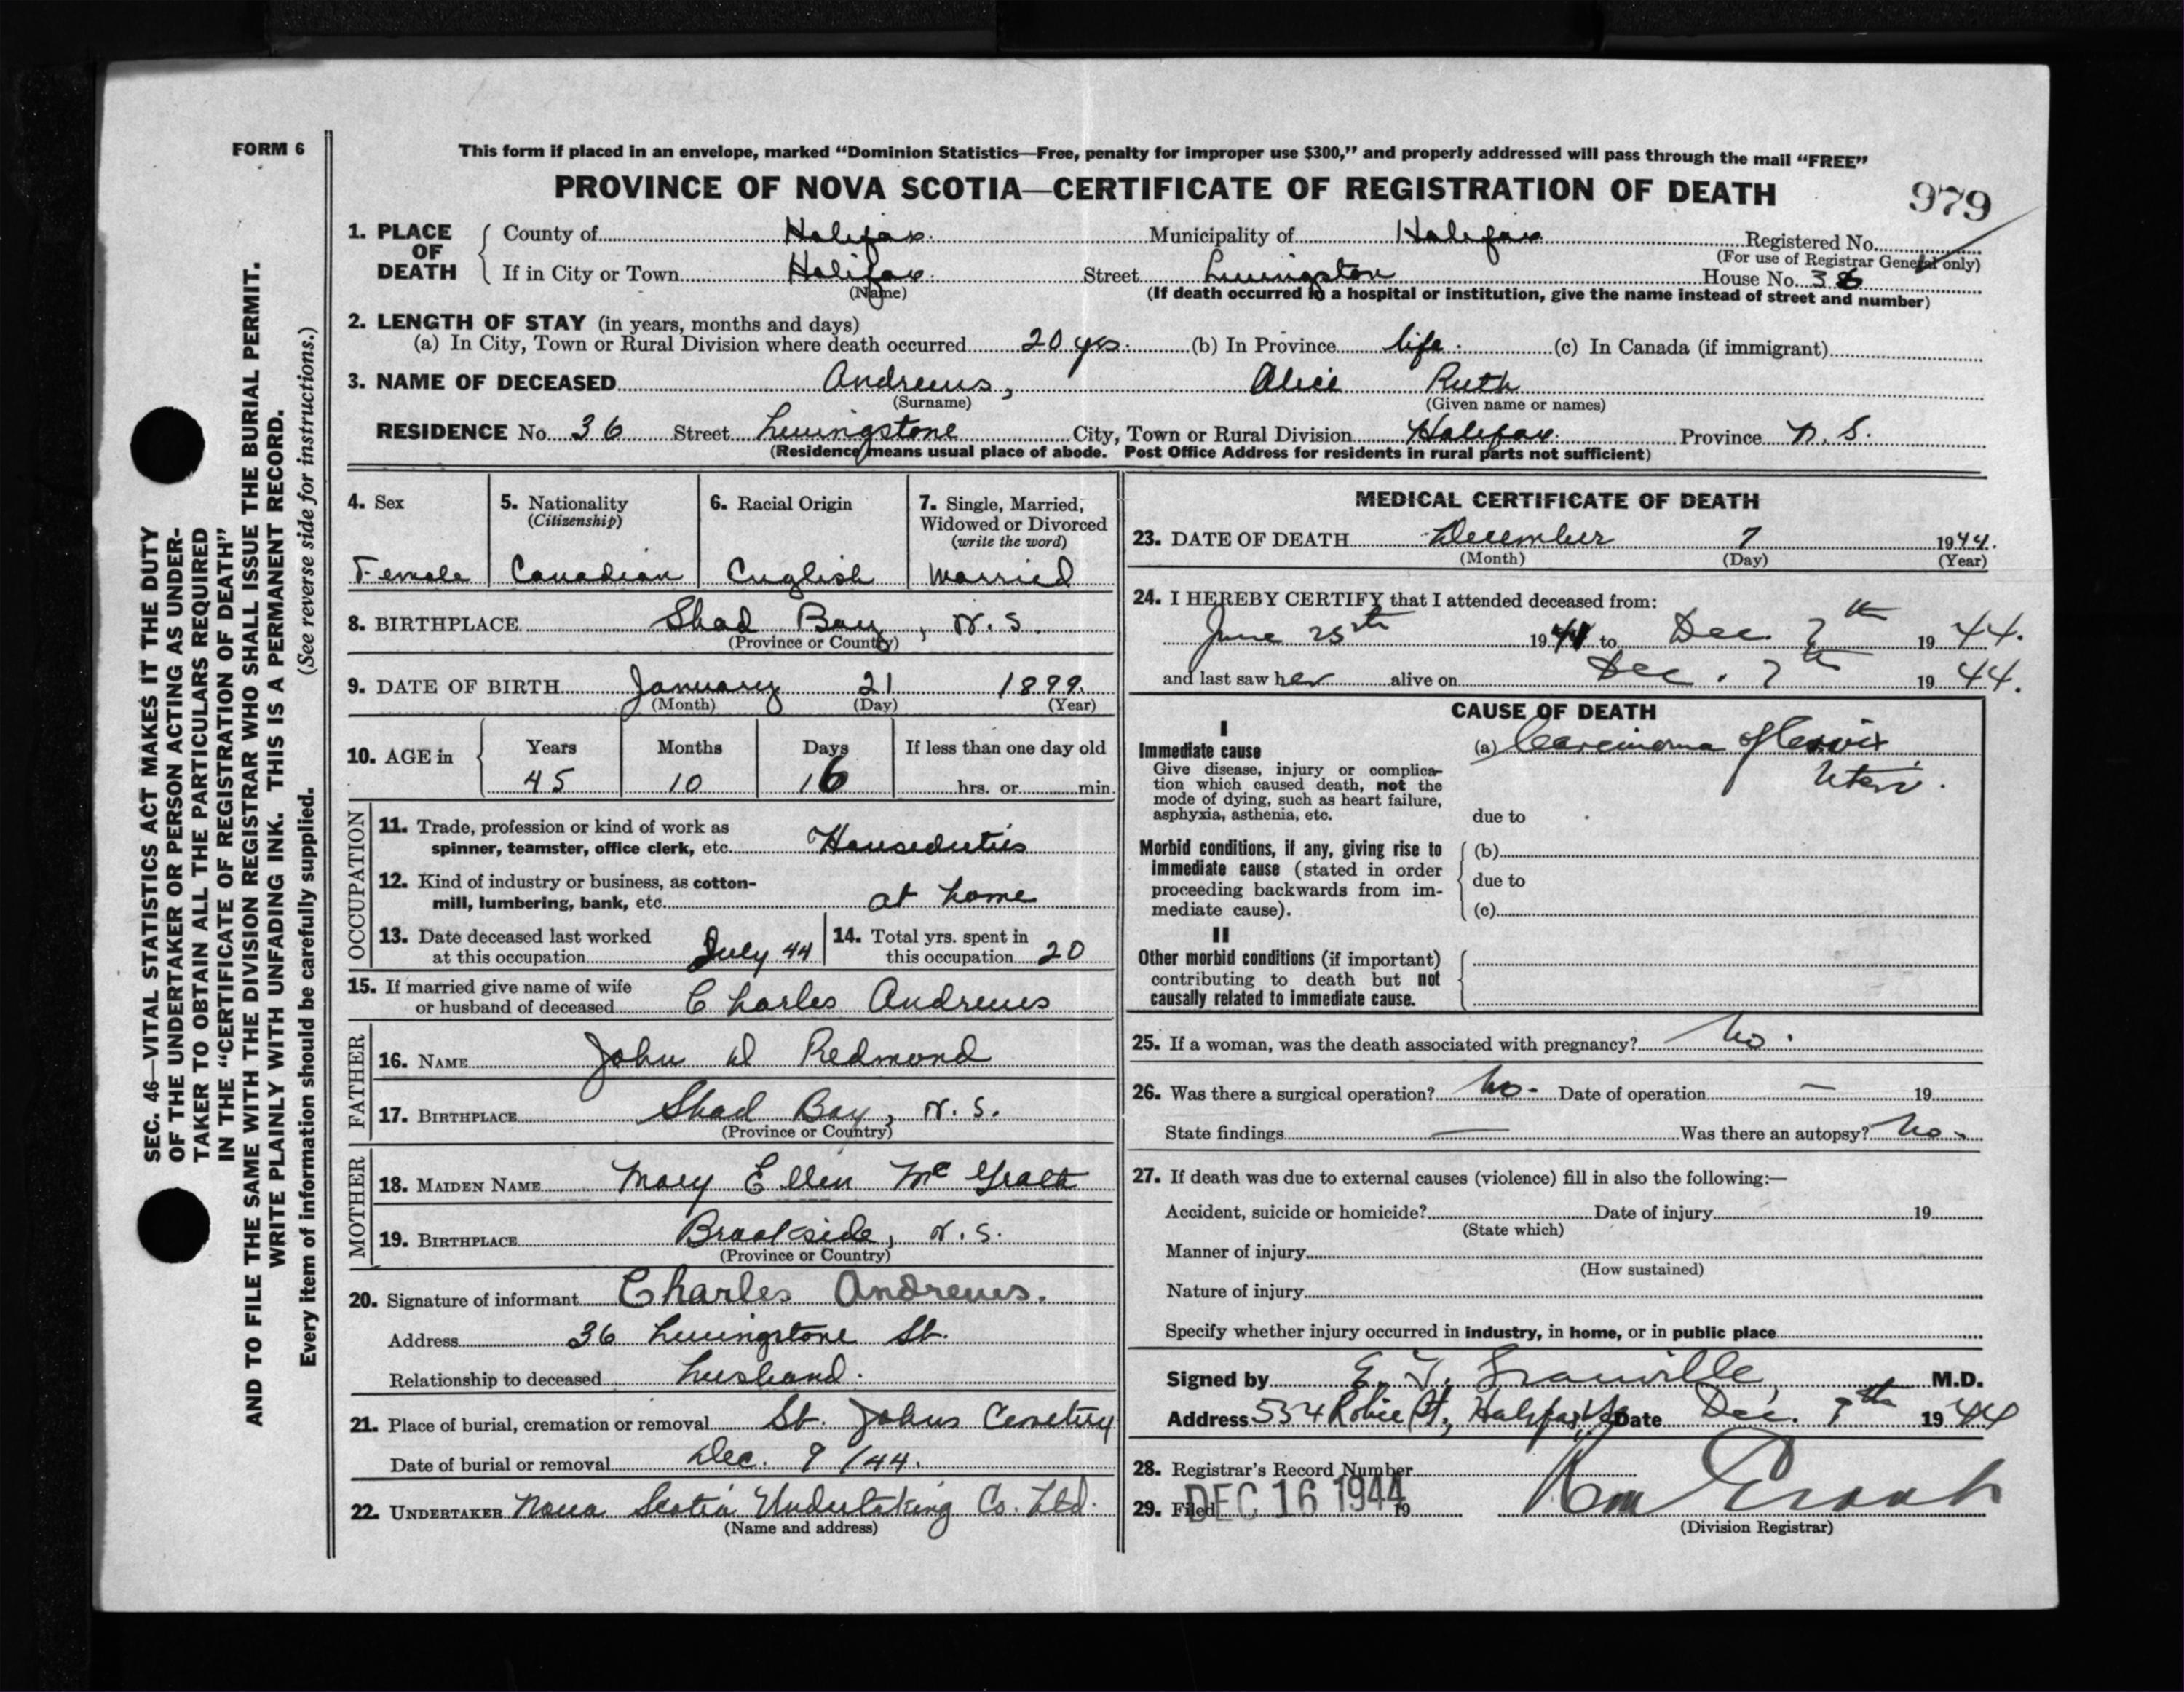 FORM 6
This form if placed in an envelope, marked "Dominion Statistics—Free, penalty for improper use $300," and properly addressed will pass through the mail "FREE"
PROVINCE OF NOVA SCOTIA—CERTIFICATE OF REGISTRATION OF DEATH
979
1. PLACE OF DEATH
County of Halifax. Municipality of Halifax Registered No.
(For use of Registrar General only)
If in City or Town Halifax. Street Livingston House No. 36
(Name) (If death occurred in a hospital or institution, give the name instead of street and number)
2. LENGTH OF STAY (in years, months and days)
(a) In City, Town or Rural Division where death occurred 20 yrs. (b) In Province life. (c) In Canada (if immigrant)
3. NAME OF DECEASED Andrews, Alice Ruth
(Surname) (Given name or names)
RESIDENCE No. 36 Street Livingstone City, Town or Rural Division Halifax. Province N.S.
(Residence means usual place of abode. Post Office Address for residents in rural parts not sufficient)
4. Sex
Female
5. Nationality
(Citizenship)
Canadian
6. Racial Origin
English
7. Single, Married,
Widowed or Divorced
(write the word)
Married
8. BIRTHPLACE Shad Bay, N.S.
(Province or Country)
9. DATE OF BIRTH January 21 1899.
(Month) (Day) (Year)
10. AGE in
Years Months Days If less than one day old
45 10 16 hrs. or min.
OCCUPATION
11. Trade, profession or kind of work as
spinner, teamster, office clerk, etc. Houseduties
12. Kind of industry or business, as cotton-
mill, lumbering, bank, etc. at home
13. Date deceased last worked
at this occupation July 44
14. Total yrs. spent in
this occupation 20
15. If married give name of wife
or husband of deceased Charles Andrews
FATHER
16. NAME John W Redmond
17. BIRTHPLACE Shad Bay, N.S.
(Province or Country)
MOTHER
18. MAIDEN NAME Mary Ellen McGrath
19. BIRTHPLACE Brookside, N.S.
(Province or Country)
20. Signature of informant Charles Andrews.
Address 36 Livingstone St.
Relationship to deceased husband.
21. Place of burial, cremation or removal St. Johns Cemetery
Date of burial or removal Dec. 9/44.
22. UNDERTAKER Nova Scotia Undertaking Co. Ltd.
(Name and address)
MEDICAL CERTIFICATE OF DEATH
23. DATE OF DEATH December 7 1944.
(Month) (Day) (Year)
24. I HEREBY CERTIFY that I attended deceased from:
June 25th 1944 to Dec. 7th 1944.
and last saw her alive on Dec. 7th 1944.
CAUSE OF DEATH
I
Immediate cause
Give disease, injury or complica-
tion which caused death, not the
mode of dying, such as heart failure,
asphyxia, asthenia, etc.
(a) Carcinoma of Cervix
Uteri.
due to
Morbid conditions, if any, giving rise to
immediate cause (stated in order
proceeding backwards from im-
mediate cause).
(b)
due to
(c)
II
Other morbid conditions (if important)
contributing to death but not
causally related to immediate cause.
25. If a woman, was the death associated with pregnancy? No.
26. Was there a surgical operation? No - Date of operation — 19
State findings — Was there an autopsy? No -
27. If death was due to external causes (violence) fill in also the following:—
Accident, suicide or homicide? Date of injury 19
(State which)
Manner of injury
(How sustained)
Nature of injury
Specify whether injury occurred in industry, in home, or in public place
Signed by E. F. Granville, M.D.
Address 554 Robie St., Halifax Date Dec. 7th 1944
28. Registrar's Record Number
29. Filed DEC 16 1944 19
(Division Registrar)
SEC. 46—VITAL STATISTICS ACT MAKES IT THE DUTY
OF THE UNDERTAKER OR PERSON ACTING AS UNDER-
TAKER TO OBTAIN ALL THE PARTICULARS REQUIRED
IN THE "CERTIFICATE OF REGISTRATION OF DEATH"
AND TO FILE THE SAME WITH THE DIVISION REGISTRAR WHO SHALL ISSUE THE BURIAL PERMIT.
WRITE PLAINLY WITH UNFADING INK. THIS IS A PERMANENT RECORD.
Every item of information should be carefully supplied. (See reverse side for instructions.)